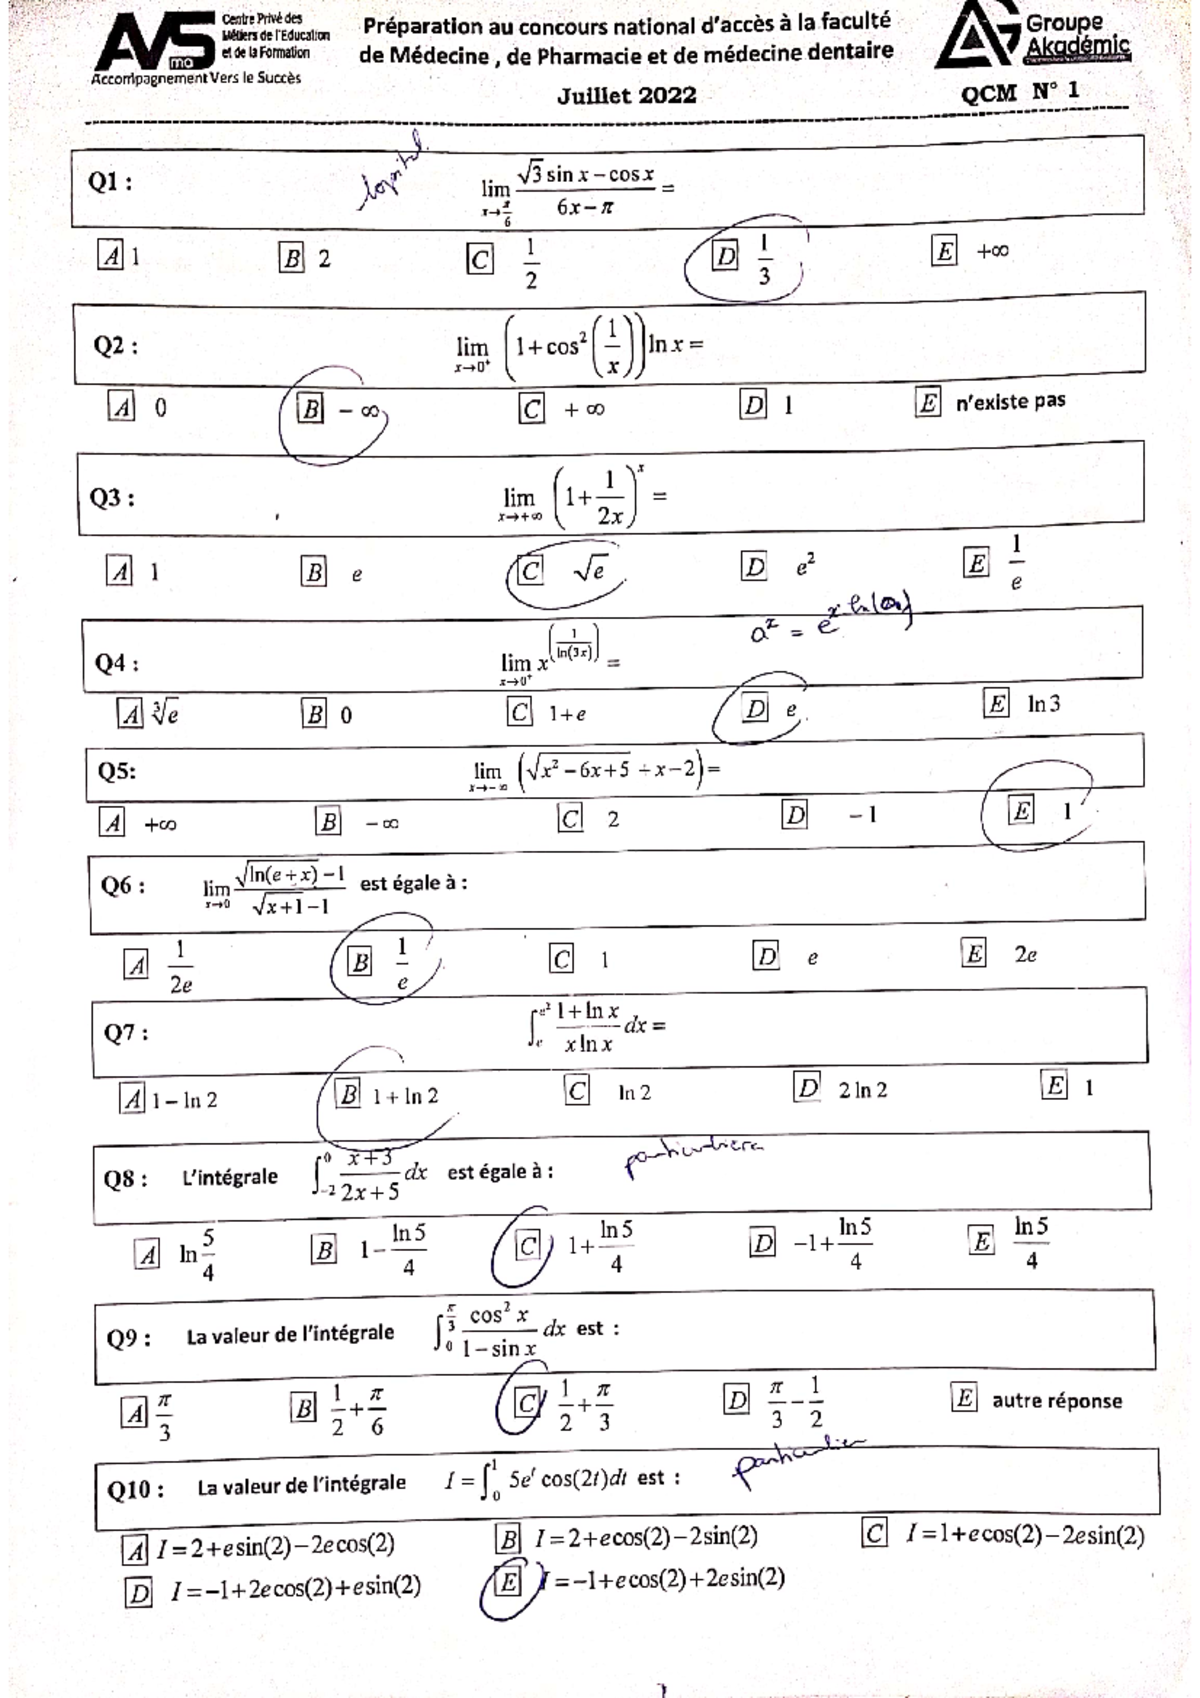 AVS
mo
Centre Privé des
Métiers de l'Education
et de la Formation
Accompagnement Vers le Succès
Préparation au concours national d'accès à la faculté
de Médecine , de Pharmacie et de médecine dentaire
Juillet 2022
Groupe
Akadémic
QCM N° 1
lopital
Q1 : lim x→π/6 (√3 sin x − cos x)/(6x − π) =
A 1 B 2 C 1/2 D 1/3 E +∞
Q2 : lim x→0⁺ (1 + cos²(1/x)) ln x =
A 0 B − ∞ C + ∞ D 1 E n'existe pas
Q3 : lim x→+∞ (1 + 1/2x)^x =
A 1 B e C √e D e² E 1/e
a^x = e^x ln(a)
Q4 : lim x→0⁺ x^(1/ln(3x)) =
A ∛e B 0 C 1+e D e E ln 3
Q5: lim x→−∞ (√(x² − 6x + 5) + x − 2) =
A +∞ B − ∞ C 2 D − 1 E 1
Q6 : lim x→0 (√(ln(e + x)) − 1)/(√(x+1) − 1) est égale à :
A 1/2e B 1/e C 1 D e E 2e
Q7 : ∫_e^e² (1 + ln x)/(x ln x) dx =
A 1 − ln 2 B 1 + ln 2 C ln 2 D 2 ln 2 E 1
Q8 : L'intégrale ∫_−2^0 (x + 3)/(2x + 5) dx est égale à :
A ln 5/4 B 1 − ln 5/4 C 1 + ln 5/4 D −1 + ln 5/4 E ln 5/4
Q9 : La valeur de l'intégrale ∫_0^π/3 cos² x/(1 − sin x) dx est :
A π/3 B 1/2 + π/6 C 1/2 + π/3 D π/3 − 1/2 E autre réponse
particulier
Q10 : La valeur de l'intégrale I = ∫_0^1 5e^t cos(2t)dt est :
A I = 2+esin(2)−2ecos(2) B I = 2+ecos(2)−2sin(2) C I = 1+ecos(2)−2esin(2)
D I = −1+2ecos(2)+esin(2) E I = −1+ecos(2)+2esin(2)